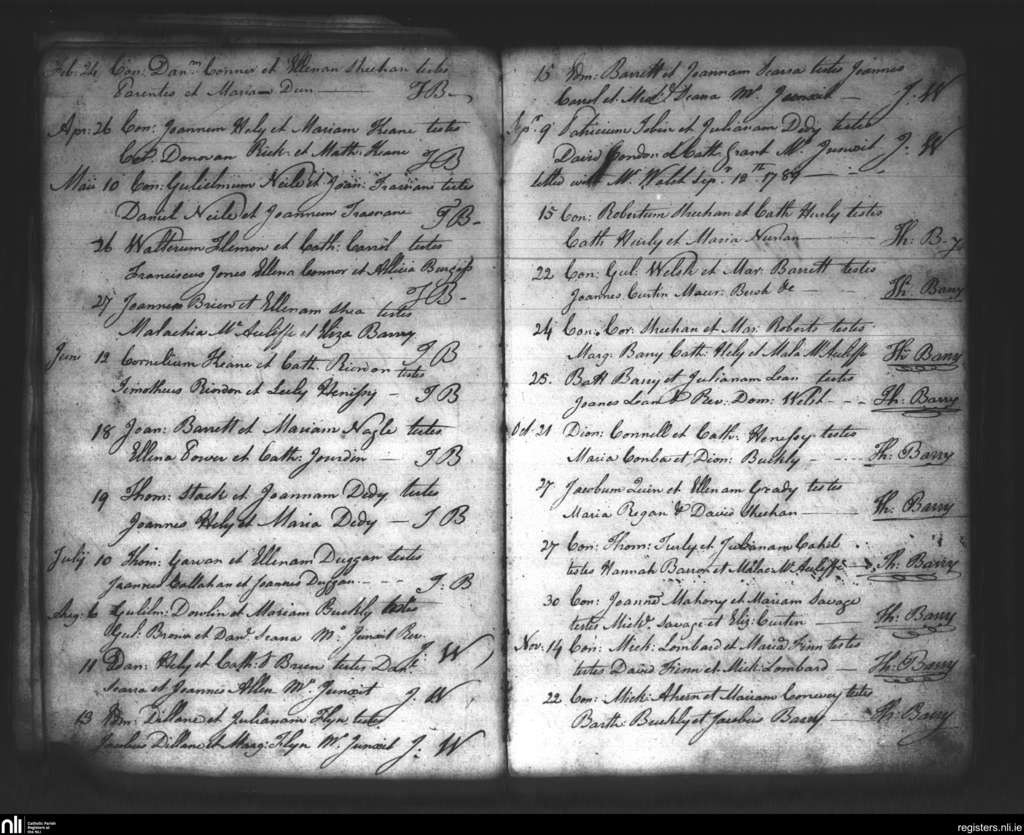 Feb: 24 Con: Danm Connor et Ellenam Sheehan testes
Parentes et Mariam Deen — T B —
Apr: 26 Con: Joannem Hely et Mariam Keane testes
Donovan Rick: et Math: Keane T B
Maii 10 Con: Gulielmum Neile et Joan: testes
Daniel Neile et Joannem T B —
26 Walterum Flemon et Cath: Carrol testes
Franciscus Jones Ellena Connor et Allicia Burgess
T B —
27 Joannem Brien et Ellenam Shea testes
Malachia Mc Auliffe et Eliza Barry
T B
Junii 12 Cornelium Keane et Cath: Riordon testes
Timotheus Riordon et — T B
18 Joan: Barrett et Mariam Nagle testes
Ellena Power et Cath: Jourden — T B
19 Thom: Stack et Joannam Dedy testes
Joannes Hely et Maria Dedy — T B
Julÿ 10 Thom: Garvan et Ellenam Duggan testes
Joannes Callahan et Joannes Duggan — T: B
Aug: 6 Gulielm: Dowlin et Mariam Buckly testes
Gul: Brown et Danl: Scana Mr: Junoit Rev.
J. W
11 Dan: Hely et Cath: O Brien testes Danl:
et Joannes Allen Mr. Junoit J. W
13 Edm: Dillane et Julianam Flyn testes
Jacobus Dillane et Marg: Flyn Mr Junoit J. W
15 Edm: Barrett et Joannam testes Joannes
Carrol et Mich: Scana Mr. Junoit — J. W
Sepr. 9 Patricium Tobin et Julianam Dedy testes
David Condon et Cath: Grant Mr. Junoit J. W
settled with Mr. Welsh Sepr. 12th 1789
15 Con: Robertum Sheehan et Cath Hurly testes
Cath Hurly et Maria Nunan — Th: B-y
22 Con: Gul: Welsh et Mar: Barrett testes
Joannes Curtin Maur: Bush &c — Th: Barry
24 Con: Cor: Sheehan et Mar: Roberts testes
Marg: Barry Cath: Hely et Mala Mc Auliffe Th: Barry
25. Batt Barry et Julianam Lean testes
Joanes Lean & Rev: Dom: Welsh - - - Th: Barry
Oct: 21 Dion: Connell et Cath: testes
Maria Comba et Dion: Buckly - - - - Th: Barry
27 Jacobum Quin et Ellenam Grady testes
Maria Regan & David Sheehan — Th: Barry
27 Con: Thom: Turly et Julianam Cahil
testes Hannah Barron et Malac Mc Auliffe Th: Barry
30 Con: Joanne Mahony et Mariam Savage
testes Mich. Savage et Eliz: Curtin — Th: Barry
Nov: 14 Con: Mich: Lombard et Maria Finn testes
testes David Finn et Mich: Lombard — Th: Barry
22 Con: Mich: Ahern et Mariam testes
Barth: Buckly et Jacobus Barry — Th: Barry
NLI
Catholic Parish
Registers at
the NLI
registers.nli.ie